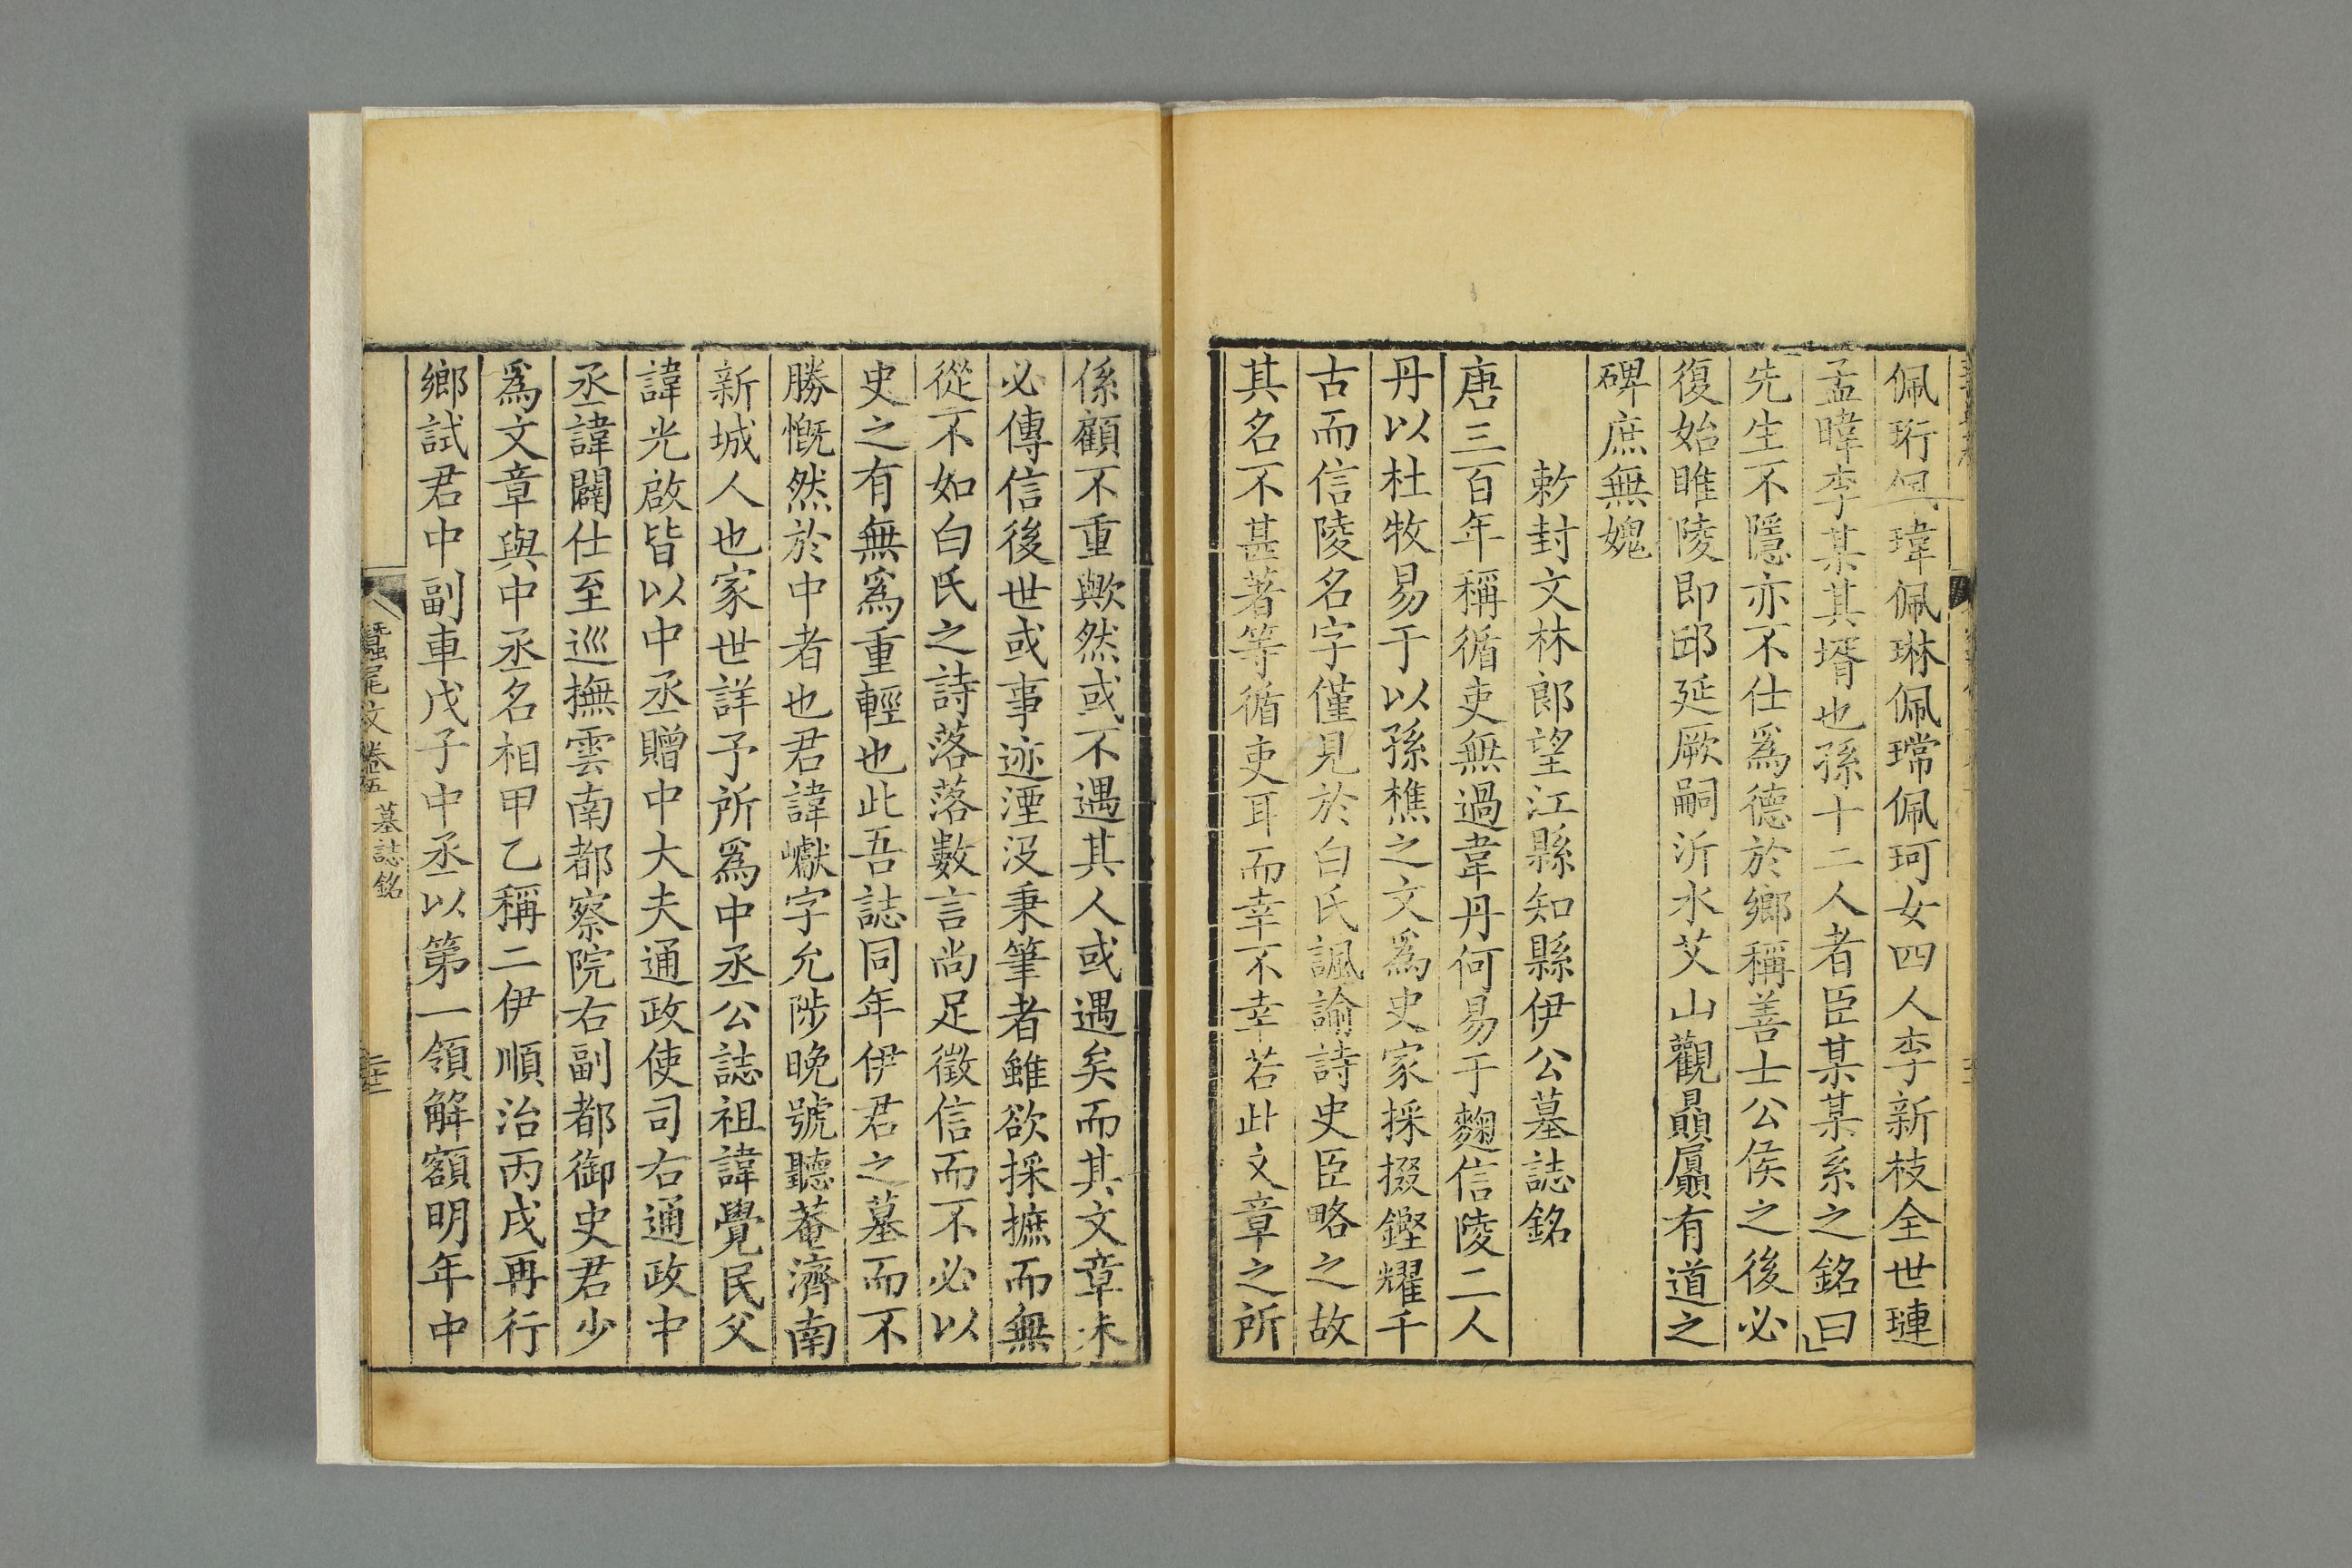 佩珩佩瑋佩琳佩瑺佩珂女四人李新枝全世璉
孟暐李某其壻也孫十二人者臣某某系之銘曰
先生不隱亦不仕爲德於鄉稱善士公侯之後必
復始睢陵即邱延厥嗣沂水艾山觀贔屭有道之
碑庶無媿
敕封文林郎望江縣知縣伊公墓誌銘
唐三百年稱循吏無過韋丹何易于麴信陵二人
丹以杜牧易于以孫樵之文爲史家採掇鏗耀千
古而信陵名字僅見於白氏諷諭詩史臣略之故
其名不甚著等循吏耳而幸不幸若此文章之所
係顧不重歟然或不遇其人或遇矣而其文章未
必傳信後世或事迹湮沒秉筆者雖欲採摭而無
從不如白氏之詩落落數言尚足徵信而不必以
史之有無爲重輕也此吾誌同年伊君之墓而不
勝慨然於中者也君諱巘字允陟晚號聽菴濟南
新城人也家世詳予所爲中丞公誌祖諱覺民父
諱光啟皆以中丞贈中大夫通政使司右通政中
丞諱闢仕至巡撫雲南都察院右副都御史君少
爲文章與中丞名相甲乙稱二伊順治丙戌再行
鄉試君中副車戊子中丞以第一領解額明年中
蠶尾文卷五 墓誌銘